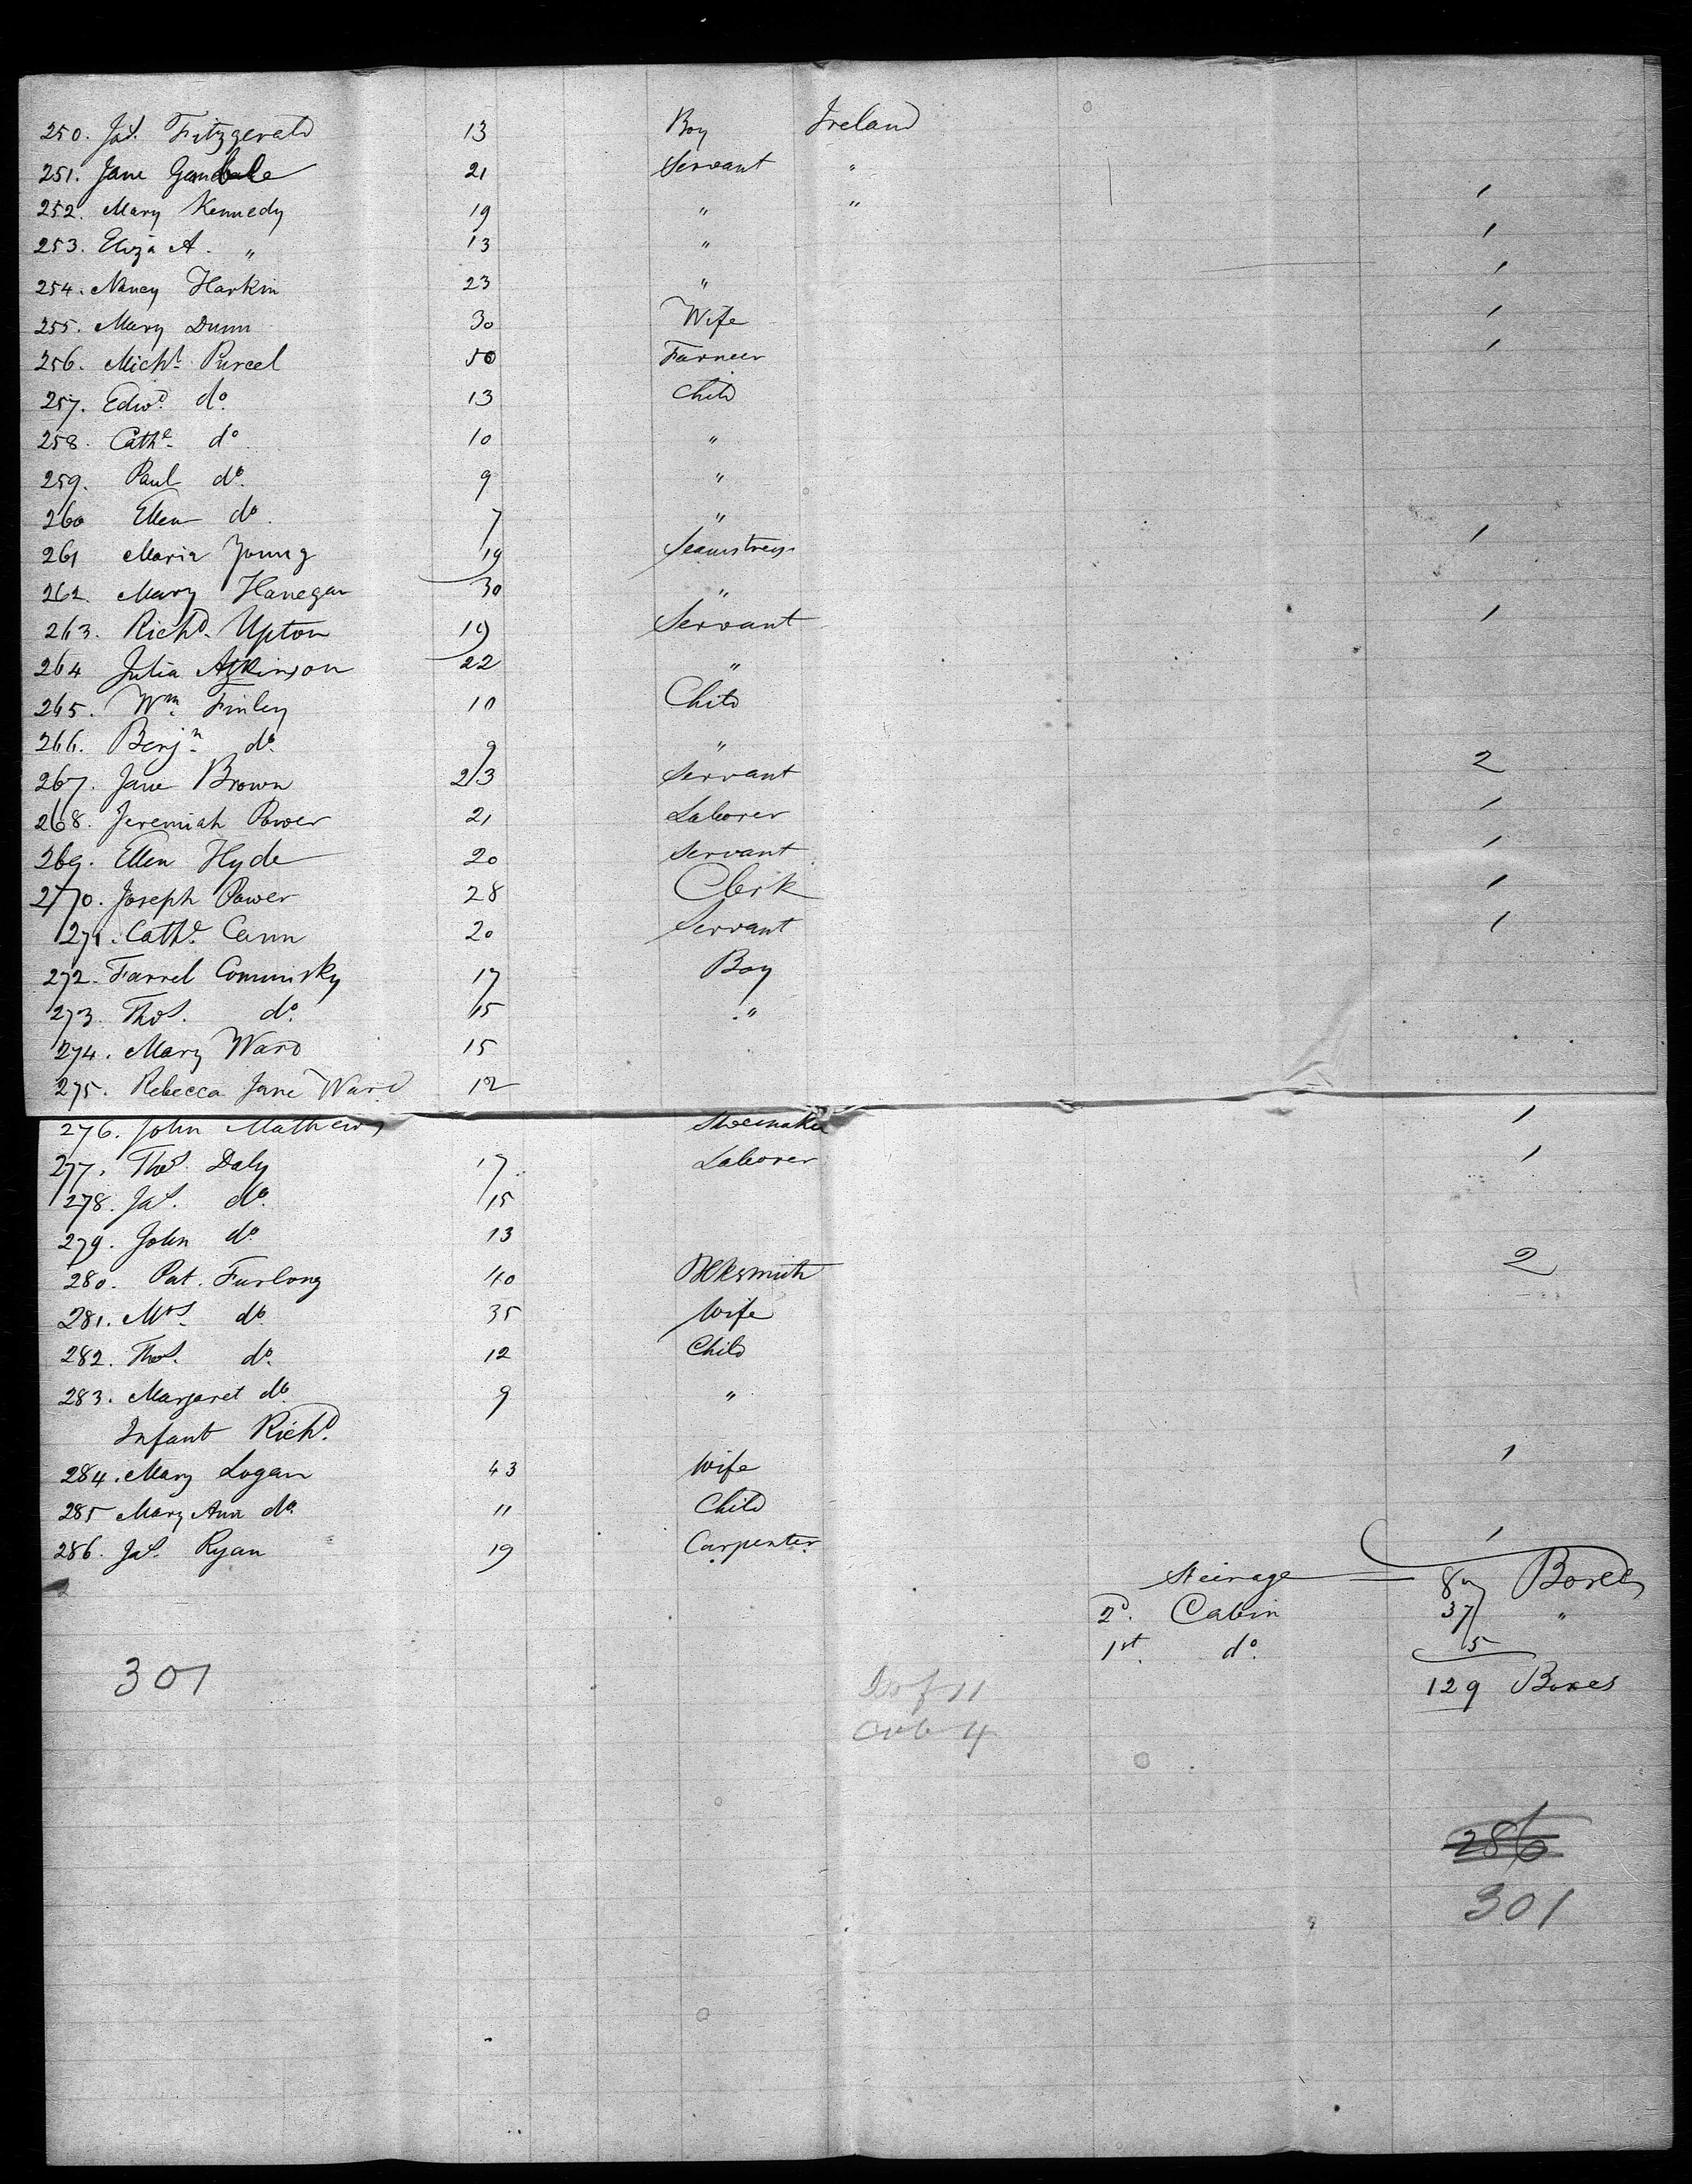 250. Jas. Fitzgerald 13 Boy Ireland
251. Jane Gamble 21 Servant "
252. Mary Kennedy 19 " " 1
253. Eliza A. " 13 " 1
254. Nancy Harkin 23 " 1
255. Mary Dunn 30 Wife 1
256. Michl. Purcel 50 Farmer 1
257. Edwd. do. 13 Child
258. Cathe. do 10 "
259. Paul do. 9 "
260 Ellen do. 7 "
261 Maria Young 19 Seamstress 1
262. Mary Hanegan 30 "
263. Richd. Upton 19 Servant 1
264 Julia Atkinson 22 "
265. Wm. Finley 10 Child
266. Benjn. do. 9 "
267. Jane Brown 23 Servant 2
268. Jeremiah Power 21 Laborer 1
269. Ellen Hyde 20 Servant 1
270. Joseph Power 28 Clerk 1
271. Cathe. Cann 20 Servant 1
272. Farrel Commisky 17 Boy
273. Thos. do. 15 "
274. Mary Ward 15
275. Rebecca Jane Ward 12
276. John Mathews Shoemaker 1
277. Thos. Daly 17 Laborer 1
278. Jas. do. 15
279. John do 13
280. Pat. Furlong 40 Blksmith 2
281. Mrs. do. 35 Wife
282. Thos. do. 12 Child
283. Margaret do. 9 "
Infant Richd.
284. Mary Logan 43 Wife 1
285 Mary Ann do. 11 Child
286. Jas. Ryan 19 Carpenter 1
Steirage 87 Boxes
2d. Cabin 37 "
1st. do. 5
129 Boxes
301
286
301